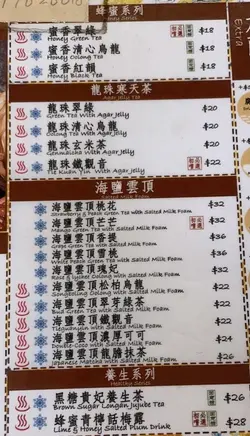 蜂蜜系列
Honey Series
蜜香翠綠
Honey Green Tea
$18
蜜香清心烏龍
Honey Oolong Tea
$18
蜜香紅韻
Honey Black Tea
$18
Extra
龍珠寒天茶
Agar Jelly Tea
龍珠翠綠
Green Tea With Agar Jelly
$20
龍珠清心烏龍
Oolong Tea With Agar Jelly
$20
龍珠玄米茶
Genmaicha With Agar Jelly
$20
龍珠鐵觀音
Tie Kuan Yin With Agar Jelly
$22
海鹽雲頂
Salted Milk Foam
海鹽雲頂桃花
Strawberry & Peach Green Tea with Salted Milk Foam
$32
海鹽雲頂芒芒
Mango Green Tea with Salted Milk Foam
$36
海鹽雲頂香提
Green Tea with Salted Milk Foam
$36
海鹽雲頂雪桃
Green Tea with Salted Milk Foam
$36
海鹽雲頂瑰妃
Rose & Lychee Oolong with Salted Milk Foam
$32
海鹽雲頂松柏烏龍
Songboling Oolong with Salted Milk Foam
$22
海鹽雲頂翠芽綠茶
Bud Green Tea with Salted Milk Foam
$22
海鹽雲頂鐵觀音
Tieguanyin with Salted Milk Foam
$24
海鹽雲頂濃厚可可
with Salted Milk Foam
$24
海鹽雲頂龍膽抹茶
Japanese Matcha with Salted Milk Foam
$26
養生系列
Healthy Series
黑糖貴妃養生茶
Brown Sugar Longan Jujube Tea
$26
蜂蜜青檸話梅露
Lime & Honey Salted Plum Drink
$28